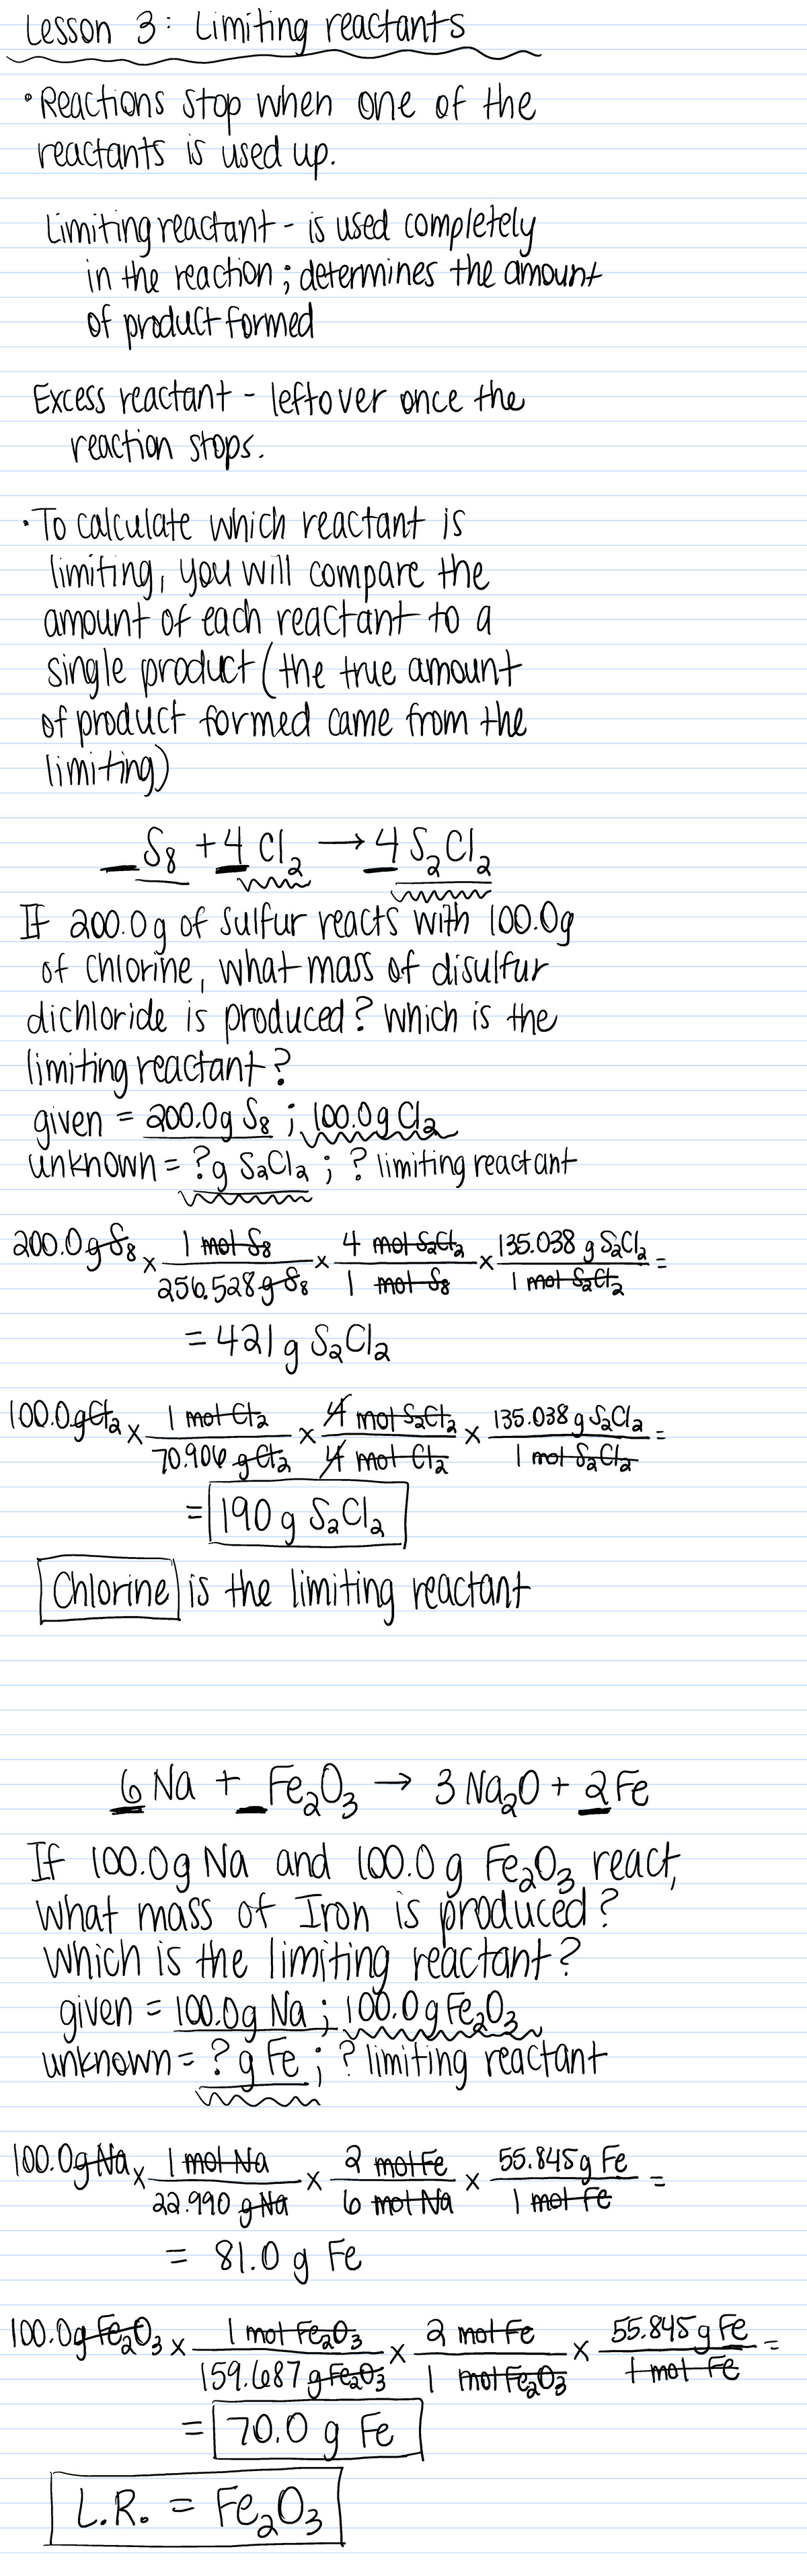 Lesson 3: Limiting reactants
• Reactions stop when one of the
reactants is used up.
Limiting reactant - is used completely
in the reaction; determines the amount
of product formed
Excess reactant - leftover once the
reaction stops.
• To calculate which reactant is
limiting, you will compare the
amount of each reactant to a
single product (the true amount
of product formed came from the
limiting)
_ S₈ + 4 Cl₂ → 4 S₂Cl₂
If 200.0g of sulfur reacts with 100.0g
of chlorine, what mass of disulfur
dichloride is produced? Which is the
limiting reactant?
given = 200.0g S₈ ; 100.0g Cl₂
unknown = ?g S₂Cl₂ ; ? limiting reactant
200.0g S₈ × 1 mol S₈ / 256.528 g S₈ × 4 mol S₂Cl₂ / 1 mol S₈ × 135.038 g S₂Cl₂ / 1 mol S₂Cl₂ =
= 421 g S₂Cl₂
100.0g Cl₂ × 1 mol Cl₂ / 70.906 g Cl₂ × 4 mol S₂Cl₂ / 4 mol Cl₂ × 135.038 g S₂Cl₂ / 1 mol S₂Cl₂ =
= 190 g S₂Cl₂
Chlorine is the limiting reactant
6 Na + _ Fe₂O₃ → 3 Na₂O + 2 Fe
If 100.0g Na and 100.0 g Fe₂O₃ react,
what mass of Iron is produced?
Which is the limiting reactant?
given = 100.0g Na ; 100.0g Fe₂O₃
unknown = ? g Fe ; ? limiting reactant
100.0g Na × 1 mol Na / 22.990 g Na × 2 mol Fe / 6 mol Na × 55.845 g Fe / 1 mol Fe =
= 81.0 g Fe
100.0g Fe₂O₃ × 1 mol Fe₂O₃ / 159.687 g Fe₂O₃ × 2 mol Fe / 1 mol Fe₂O₃ × 55.845 g Fe / 1 mol Fe =
= 70.0 g Fe
L.R. = Fe₂O₃